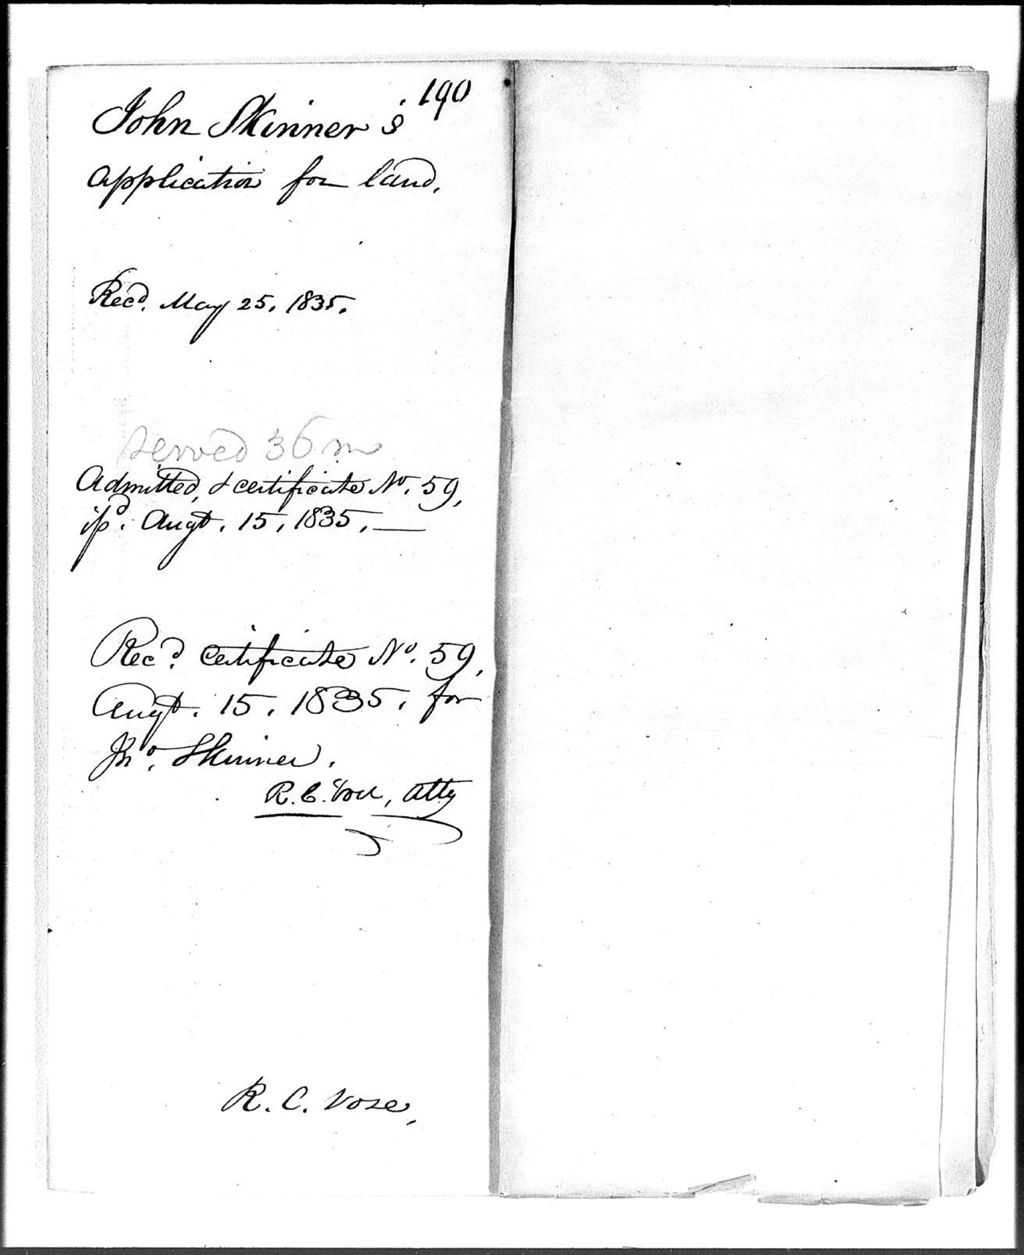 190
John Skinner's
application for land.
Recd. May 25, 1835.
served 36 m
Admitted, & certificate No. 59,
isd. Augt. 15, 1835. —
Recd. certificate No. 59,
Augt. 15. 1835. for
Jno. Skinner.
R. C. Vose, Atty
R. C. Vose,